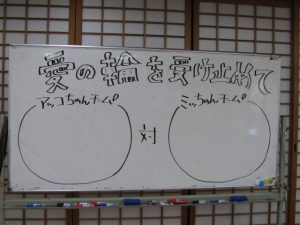 愛の輪を受け止めて
アッコちゃんチーム
対
ミッちゃんチーム